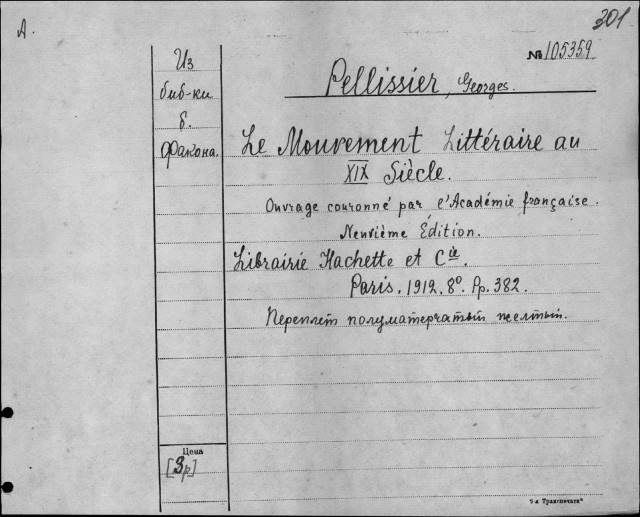 A.
301
№ 105359
Из
биб-ки
б.
Факона.
Pellissier, Georges.
Le Mouvement Littéraire au
XIX Siècle.
Ouvrage couronné par l'Académie française.
Neuvième Édition.
Librairie Hachette et Cie.
Paris. 1912. 8º. Pp. 382.
Переплет полуматерчатый желтый.
Цена
[3р]